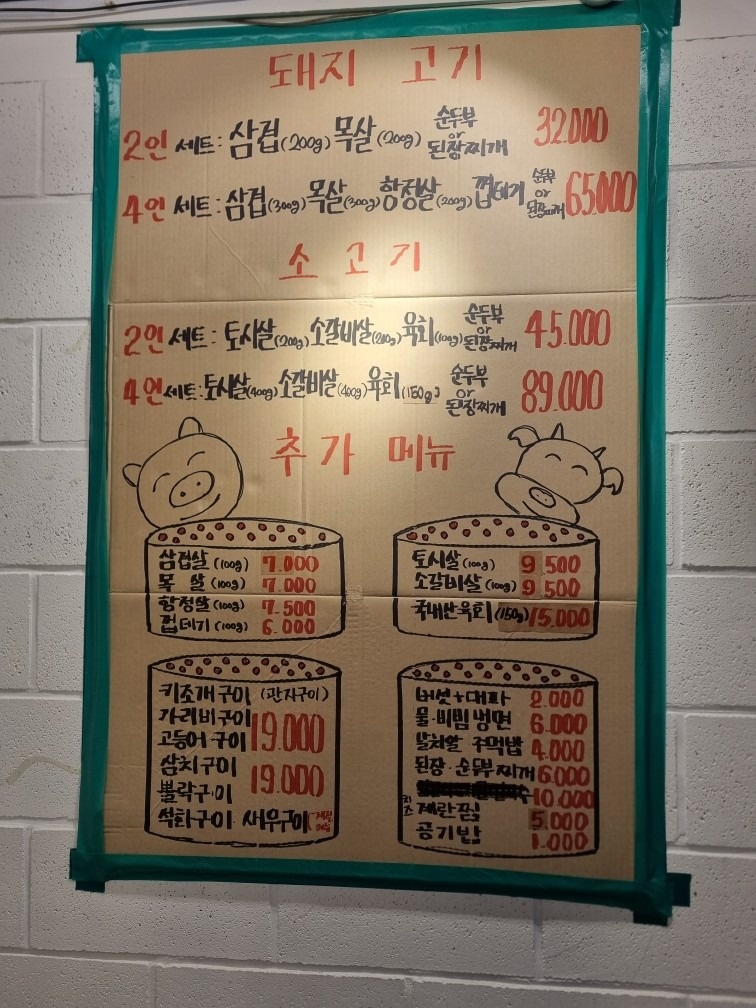 돼지 고기
2인 세트: 삼겹(200g) 목살(200g) 순두부 or 된장찌개 32.000
4인 세트: 삼겹(300g) 목살(300g) 항정살(200g) 껍데기 순두부 or 된장찌개 65.000
소고기
2인 세트: 토시살(200g) 소갈비살(200g) 육회(100g) 순두부 or 된장찌개 45.000
4인 세트: 토시살(400g) 소갈비살(400g) 육회(150g) 순두부 or 된장찌개 89.000
추가 메뉴
삼겹살(100g) 7.000
목 살(100g) 7.000
항정살(100g) 7.500
껍데기(100g) 6.000
토시살(100g) 9 500
소갈비살(100g) 9 500
국내산육회(150g) 15.000
키조개구이 (관자구이)
가리비구이
고등어구이 19.000
삼치구이
뽈락구이 19.000
석화구이 새우구이
버섯+대파 2.000
물·비빔냉면 6.000
날치알 주먹밥 4.000
된장·순두부찌개 6.000
10.000
치즈 계란찜 5.000
공기밥 1.000